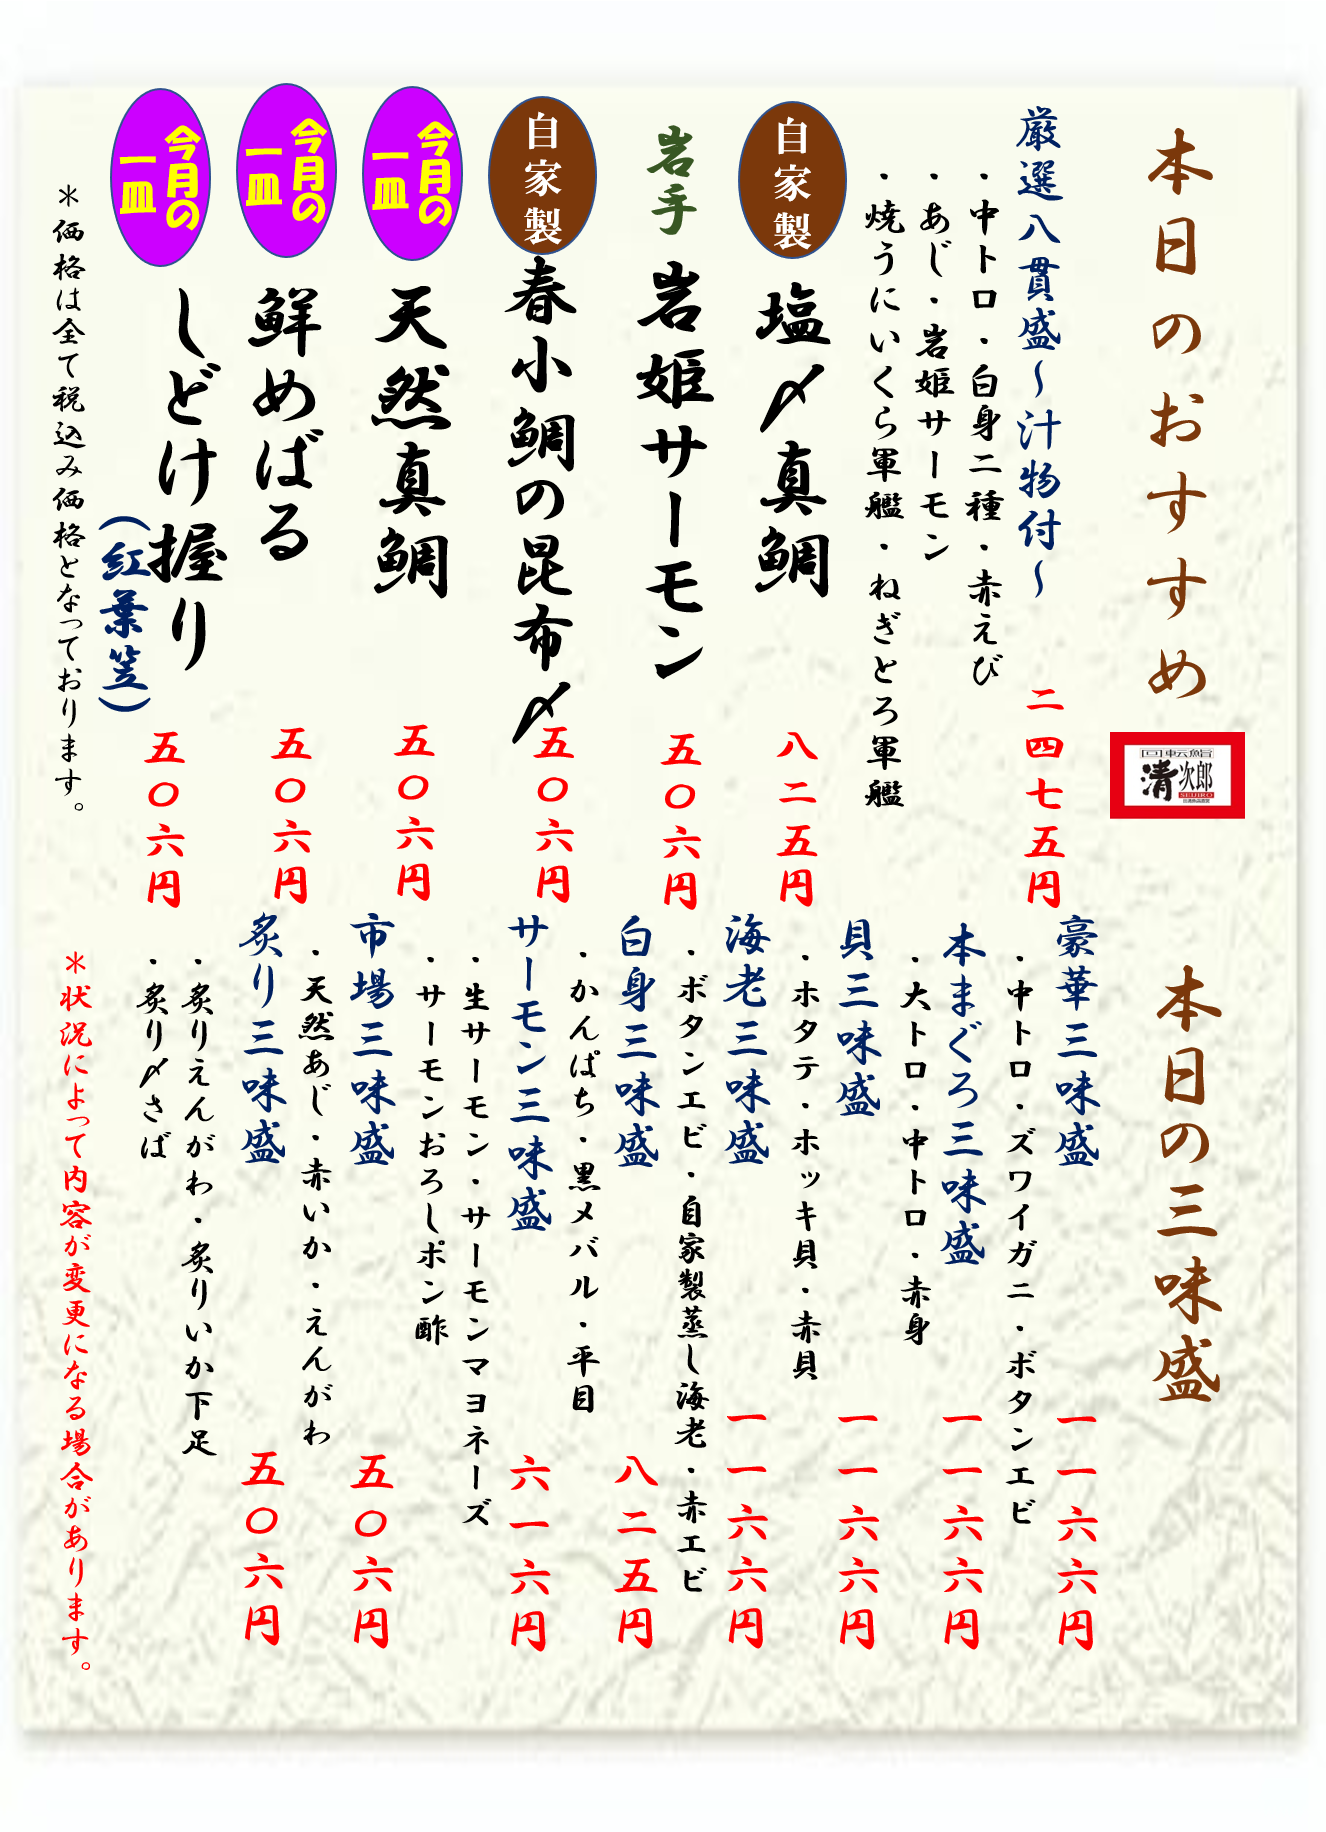 本日のおすすめ
回転鮨
清次郎
SEIJIRO
厳選八貫盛～汁物付～
二四七五円
・中トロ・白身二種・赤えび
・あじ・岩姫サーモン
・焼うにいくら軍艦・ねぎとろ軍艦
自家製
塩〆真鯛
八二五円
岩手
岩姫サーモン
五〇六円
自家製
春小鯛の昆布〆
五〇六円
今月の
一皿
天然真鯛
五〇六円
今月の
一皿
鮮めばる
五〇六円
今月の
一皿
しどけ握り
（紅葉笠）
五〇六円
＊価格は全て税込み価格となっております。
本日の三味盛
豪華三味盛
一一六六円
・中トロ・ズワイガニ・ボタンエビ
本まぐろ三味盛
一一六六円
・大トロ・中トロ・赤身
貝三味盛
一一六六円
・ホタテ・ホッキ貝・赤貝
海老三味盛
一一六六円
・ボタンエビ・自家製蒸し海老・赤エビ
白身三味盛
八二五円
・かんぱち・黒メバル・平目
サーモン三味盛
六一六円
・生サーモン・サーモンマヨネーズ
・サーモンおろしポン酢
市場三味盛
五〇六円
・天然あじ・赤いか・えんがわ
炙り三味盛
五〇六円
・炙りえんがわ・炙りいか下足
・炙り〆さば
＊状況によって内容が変更になる場合があります。